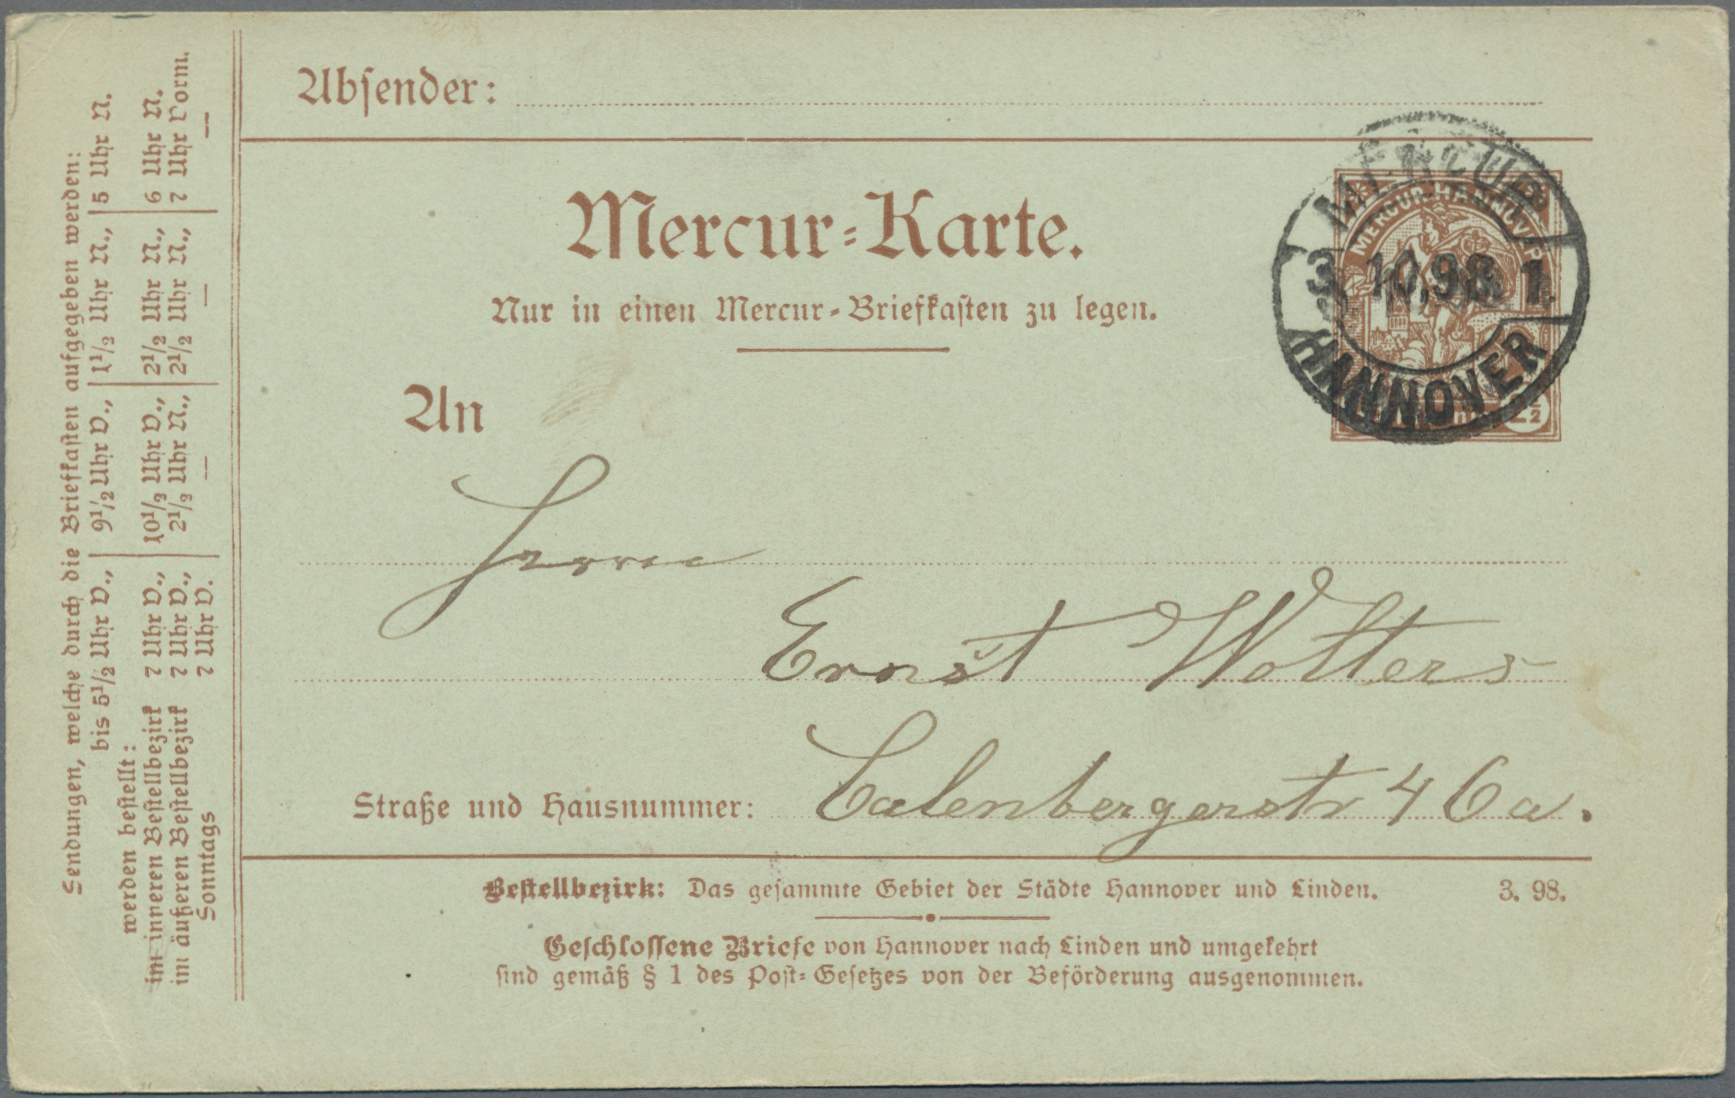 Absender:
Mercur-Karte.
Nur in einen Mercur-Briefkasten zu legen.
MERCUR
MERCUR-HANNOVER
3.10.98. 1.
HANNOVER
½
An
Herrn
Ernst Wolters
Straße und Hausnummer: Calenbergerstr 46a.
Bestellbezirk: Das gesammte Gebiet der Städte Hannover und Linden. 3. 98.
Geschlossene Briefe von Hannover nach Linden und umgekehrt
sind gemäß § 1 des Post-Gesetzes von der Beförderung ausgenommen.
Sendungen, welche durch die Briefkasten aufgegeben werden:
bis 5½ Uhr V., 9½ Uhr V., 1½ Uhr N., 5 Uhr N.
werden bestellt:
im inneren Bestellbezirk 7 Uhr V., 10½ Uhr V., 2½ Uhr N., 6 Uhr N.
im äußeren Bestellbezirk 7 Uhr V., 2½ Uhr N., 2½ Uhr N., 7 Uhr Vorm.
Sonntags 7 Uhr V. — — —